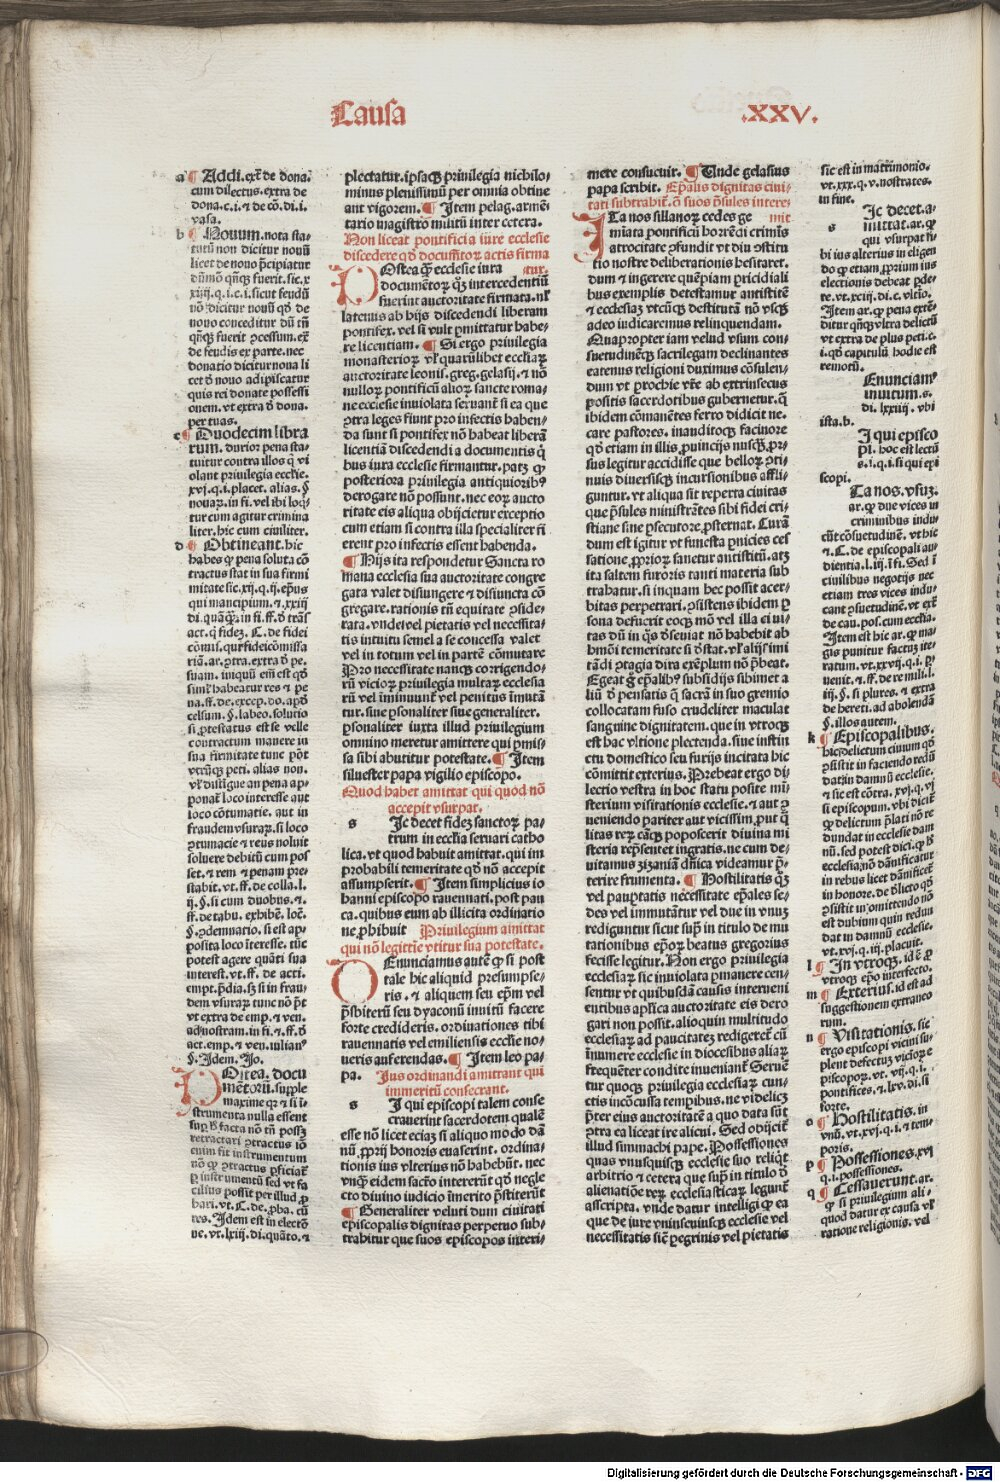 Causa
.XXV.
a ¶ Addi. extͣ de dona.
cum dilectus. extra de
dona. c. i. ⁊ de cō. di. i.
vasa.
b ¶ Nouum. nota sta-
tutū non dicitur nouū
licet de nouo p̄cipiatur
nō dicitur nouū qd̓ de
nouo conceditur
de feudis ex parte. nec
donatio dicitur noua li
cet d̓ nouo adipiscatur
quis rei donate possessi
onem. vt extra d̓ dona.
per tuas.
c ¶ Duodecim libra
rum. durior pena sta-
tuitur contra illos q̄ vi
olant priuilegia ecclīe.
tur cum agitur crimina
liter. hic cum ciuiliter.
d ¶ Obtineant. hic
habes ꝙ pena soluta cō
tractus stat in sua firmi
contractum manere in
sua firmitate
loco cōtumatie. aut in
fraudem vsuraꝝ. si loco
ꝯtumacie ⁊ reus noluit
soluere debitū cum pos
set. ⁊ rem ⁊ penam pre-
stabit. vt. ff. de colla. l.
ij. §. si cum duobus. ⁊.
posita loco īteresse. tūc
potest agere quāti sua
interest. vt. ff. de acti.
dem vsuraꝝ tunc nō p̄t
vt extra de emp. ⁊ ven.
§. Idem. Jo.
POstea. docu
mētorū. supple
strumenta nulla essent
eium fit instrumentum
cilius possit per illud ꝓ
res. Idem est in electō
plectatur. ipsaqꝫ priuilegia nichilo-
minus plenissimū per omnia obtine
ant vigorem. ¶ Item pelag. armē-
tario magistro militū inter cetera.
Non liceat pontifici a iure ecclesie
discedere qd̓ documētoꝝ actis firma
tur.
POstea q̄ ecclesie iura
documētoꝝ qꝫ intercedentiū
fuerint auctoritate firmata. nl̓
latenus ab hijs discedendi liberam
pontifex. vel si vult ꝑmittatur habe-
re licentiam. ¶ Si ergo priuilegia
monasterioꝝ vl̓ quarūlibet eccl̓iaꝝ
auctoritate leonis. greg. gelasij. ⁊ nō
nulloꝝ pontificū alioꝝ sancte roma-
ne ecclesie inuiolata seruant̄ si ea que
ꝯtra leges fiunt pro infectis haben-
da sunt si pontifex nō habeat liberā
licentiā discedendi a documentis q̄
bus iura ecclesie firmantur. patꝫ ꝙ
posteriora priuilegia antiquioribꝰ
derogare nō possunt. nec eoꝝ aucto
ritate eis aliqua obijcietur exceptio
cum etiam si contra illa specialiter fi
erent pro infectis essent habenda.
¶ Hijs ita respondetur Sancta ro
mana ecclesia sua auctoritate congre
gata valet disiungere ⁊ disiuncta cō
gregare. rationis tn̄ equitate ꝯside-
rata. vnde vel pietatis vel necessita-
tis intuitu semel a se concessa valet
vel in totum vel in partē cōmutare
Pro necessitate nanqꝫ corrigendo-
rū vicioꝝ priuilegia multaꝝ ecclesia
rū vel īminuunt̄ vel penitus īmutā
tur. siue ꝑsonaliter siue generaliter.
ꝑsonaliter iuxta illud priuilegium
omnino meretur amittere qui ꝑmis-
sa sibi abutitur potestate. ¶ Item
siluester papa vigilio episcopo.
Quod habet amittat qui quod nō
accepit vsurpat.
s Ic decet fidez sanctoꝝ pa-
trum in eccl̓ia seruari catho
lica. vt quod habuit amittat. qui im
probabili temeritate qd̓ nō accepit
assumpserit. ¶ Item simplicius io
hanni episcopo rauennati. post pau
ca. quibus eum ab illicita ordinatio
ne ꝓhibuit Priuilegium amittat
qui nō legittīe vtitur sua potestate.
DEnunciamus autē ꝙ si post
tale hic aliquid presumpse-
ris. ⁊ aliquem seu ep̄m vel
p̄sbiterū seu dyaconū inuitū facere
forte credideris. ordinationes tibi
rauennatis vel emiliensis ecclīe no-
ueris auferendas. ¶ Item leo pa-
pa. Ius ordinandi amittant qui
immeritū consecrant.
s I qui episcopi talem conse
crauerint sacerdotem qualē
esse nō licet eciaꝫ si aliquo modo dā
nū. ꝓprij honoris euaserint. ordina-
tionis ius vlterius nō habebūt. nec
vnqꝫ eidem sacr̄o intererūt qd̓ negle
cto diuino iudicio īmerito p̄stiterūt
¶ Generaliter veluti dum ciuitati
episcopalis dignitas perpetuo sub-
trahitur que suos episcopos interi-
mere consueuit. ¶ Unde gelasius
papa scribit. Ep̄alis dignitas ciui-
tati subtrahit̄. ꝙ suos p̄sules interi-
mit
ITa nos sillanoꝝ cedes ge
mīata pontificū horrēdi crimīs
atrocitate ꝯfundit vt diu ꝯstitu
tio nostre deliberationis hesitaret.
dum ⁊ ingerere quēpiam ꝑricidiali
bus exemplis detestamur antistitē
⁊ ecclesiaꝫ vtcūqꝫ destitutā nō vsqꝫ
adeo iudicaremus relinquendam.
Quapropter iam velud vsum con-
suetudinēqꝫ sacrilegam declinantes
eatenus religioni duximus cōsulen-
dum vt ꝑrochie vr̄e ab extrinsecus
positis sacerdotibus gubernetur. q̄
ibidem cōmanētes ferro didicit ne-
care pastores. inauditoqꝫ facinore
qd̓ etiam in illis ꝓuincijs nusqꝫ ꝓr-
sus legitur accidisse que belloꝝ ꝯti-
nuis diuersisqꝫ incursionibus affli-
guntur. vt aliqua sit reperta ciuitas
que p̄sules ministrātes sibi fidei cri-
stiane sine ꝑsecutore ꝓsternat. Curā
dum est igitur vt funesta ꝑnicies ces
satione ꝓprioꝝ sanetur antistitū. atꝫ
ita saltem furoris tanti materia sub
trahatur. si inquam hec possit acer-
bitas perpetrari. ꝯsistens ibidem ꝑ
sona defuerit eoqꝫ mō vel illa ei vi-
tas dū in qͦs d̓seuiat nō habebit ab
hm̄oi temeritate si d̓stat. vl̓ alijs imi
tādi ꝯtagia dira exēplum nō p̄beat.
Egeat ḡ ep̄alibꝰ subsidijs sibimet a
liū d̓ pensatis q̄ sacrā in suo gremio
collocatam fuso crudeliter maculat
sanguine dignitatem. que in vtroqꝫ
est hac vltione plectenda. siue instin
ctu domestico seu furijs incitata hic
cōmittit exterius. Prebeat ergo di-
lectio vestra in hoc statu posite mi-
sterium visitationis ecclesie. ⁊ aut ꝯ
ueniendo pariter aut vicissim ꝓut q̄
litas reꝝ cāqꝫ poposcerit diuina mi
steria rep̄sentet ingratis. ne cum de-
uitamus zizaniā dn̄ica videamur p̄-
terire frumenta. ¶ Hostilitatis qꝫ
vel pauptatis necessitate ep̄ales se-
des vel immutātur vel due in vnuꝫ
rediguntur sicut sup̄ in titulo de mu
tationibus ep̄oꝝ beatus gregorius
fecisse legitur. Non ergo priuilegia
ecclesiaꝝ sic inuiolata ꝑmanere cen-
sentur vt quibusdā causis interueni
entibus aplica auctoritate eis dero
gari non possit. alioquin multitudo
ecclesiaꝝ ad paucitateꝫ redigeret̄ cū
īnumere ecclesie in diocesibus aliaꝝ
frequēter condite inueniant̄ Seruē
tur quoqꝫ priuilegia ecclesiaꝝ cun-
ctis incōcussa tempibus. ne videlicꝫ
p̄ter eius auctoritatē a quo data sūt
ꝯtra ea liceat ire alicui. Sed obijcit̄
illud simmachi pape. Possessiones
quas vnusquisqꝫ ecclesie suo reliq̄t
arbitrio ⁊ cetera que sup̄ in titulo d̓
alienatiōe reꝝ ecclesiasticaꝝ legunt̄
asscripta. vnde datur intelligi ꝙ ea
que de iure vniuscuiusqꝫ ecclesie vel
necessitatis siue ꝑegrinis vel pietatis
sic est in matrimonio.
vt. xxx. q. v. nostrates.
in fine.
s Ic decet. a-
mittat. ar. ꝙ
qui vsurpat si-
bi ius alterius in eligen
do ꝙ etiam ꝓprium ius
electionis debeat ꝑde-
re. vt. xciij. di. c. vltīo.
vt extra de plus peti. c.
i. qd̓ capitulū hodie est
remotū.
Enunciamꝰ
inuitum. s.
di. lxxiiij. vbi
ista. h.
I qui episco
pi. hoc est lectū
s. i. q. i. si qui epī
scopi.
Ita nos. vsuꝫ.
ar. ꝙ due vices in
criminibus indu
cūt cōsuetudinē. vt hic
⁊. C. de episcopali au-
dientia. l. iij. ī fi. Sed ī
ciuilibus negotijs nec
etiam tres vices indu-
Item est hic ar. ꝙ ma-
gis punitur factuꝫ ite-
§. illos autem.
k ¶ Episcopalibus.
hic delictum ciuium qd̓
ꝯsistit in faciendo redū
dat in damnū ecclesie.
si episcopum. vbi dicit̄
ꝙ delictum p̄lati nō re
dundat in ecclesie dam
nū. sed potest dici. ꝙ ī
ecclesia nō dānificatur
in rebus licet dānificet̄
in honore. de d̓licto qd̓
ꝯsistit in omittendo nō
est dubium quin redun
dat in damnū ecclesie.
vt. xvj. q. iij. placuit.
l ¶ In vtroqꝫ. id ē ꝓ
vtroqꝫ ep̄o interfecto.
m ¶ Exterius. id est ad
suggestionem extraneo
rum.
n ¶ Visitationis. sic
ergo episcopi vicini su-
plent defectuꝫ vicioꝝ e
piscopoꝝ. vt. vij. q. i.
pontifices. ⁊. lxv. di. si
forte.
o ¶ Hostilitatis. in
vnū. vt. xvj. q. i. ⁊ tem-
poris.
p ¶ Possessiones. xvj
q. i. possessiones.
q ¶ Cessauerunt. ar.
ꝙ si priuilegium ali-
quod datur ex causa vl̓
ratione religionis. vel
Digitalisierung gefördert durch die Deutsche Forschungsgemeinschaft - DFG